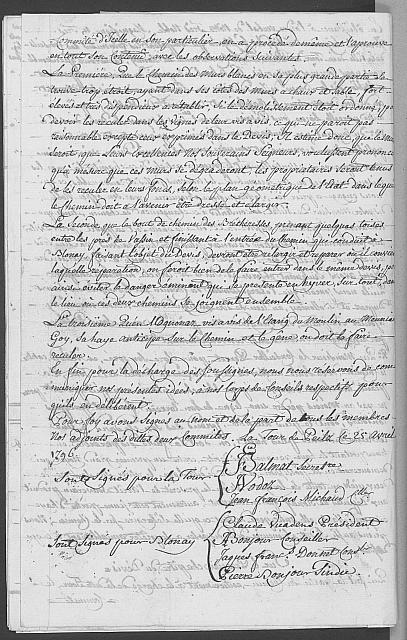 Comité d'icelle en son particulier, on a procédé de même et l'aprouve
en tout son contenu, avec les observations suivantes.
La Premiere, que le Chemin des murs blancs en sa plus grande partie se
trouve trop étroit, ayant dans ses côtés des murs a chaux et sable, fort
elevés et très dispendieux a rétablir, Si le démolissement étoit ordonné, pour
devoir les reculer dans les vignes de leur vis a vis, ce qui ne paroit pas
raisonnable excepté ceux exprimés dans le Devis; Il estime donc que le mieux
seroit que Leurs Excellences nos Souverains Seigneurs, voulussent prononcer
qu'a mesure que ces murs se dégraderont, les propriétaires seront tenus
de les reculer en leurs fonds, selon le plan géometrique de l'Etat dans lequel
le chemin doit a l'avenir être dressé et élargir.
La seconde que le bout de chemin des Brethesses, prenant quelques toises
entre les prés de Vabin et finissant a l'entrée du chemin qui conduit a
Blonay, faisant l'objet du Devis, devront être rélargir et réparer ou il convient
laquelle réparation, on feroit bien de la faire entrer dans le même devis, pour
ainsi éviter le danger éminent qui se présente en hyver, sur tout, dans
le lieu où ces deux chemins se joignent ensemble.
La troisieme Qu'en vis a vis de l'Etang du Moulin, au Monsieur
Goy, sa haye anticipe sur le Chemin et le gêne on doit la faire
reculer.
En fin pour la décharge des soussignés, nous nous réservons de com=
muniquer nos présentes idées, à nos Corps de Conseils respectifs pour
qu'ils en délibérent.
Pour foy avons signés au nom et de la part de tous les membres
Nos adjoints des dittes deux Committes. La Tour de Peilz Ce 25e Avril
1796.
Sont Signés pour la Tour { F Balmat Secretre
Vodoz
Jean François Michaud Cller
Sont Signés pour Blonay { Claude Vuadens Président
A Bonjour Conseiller
Jaques Franç.s Dupuet Consler
Pierre Bonjour Sindic.